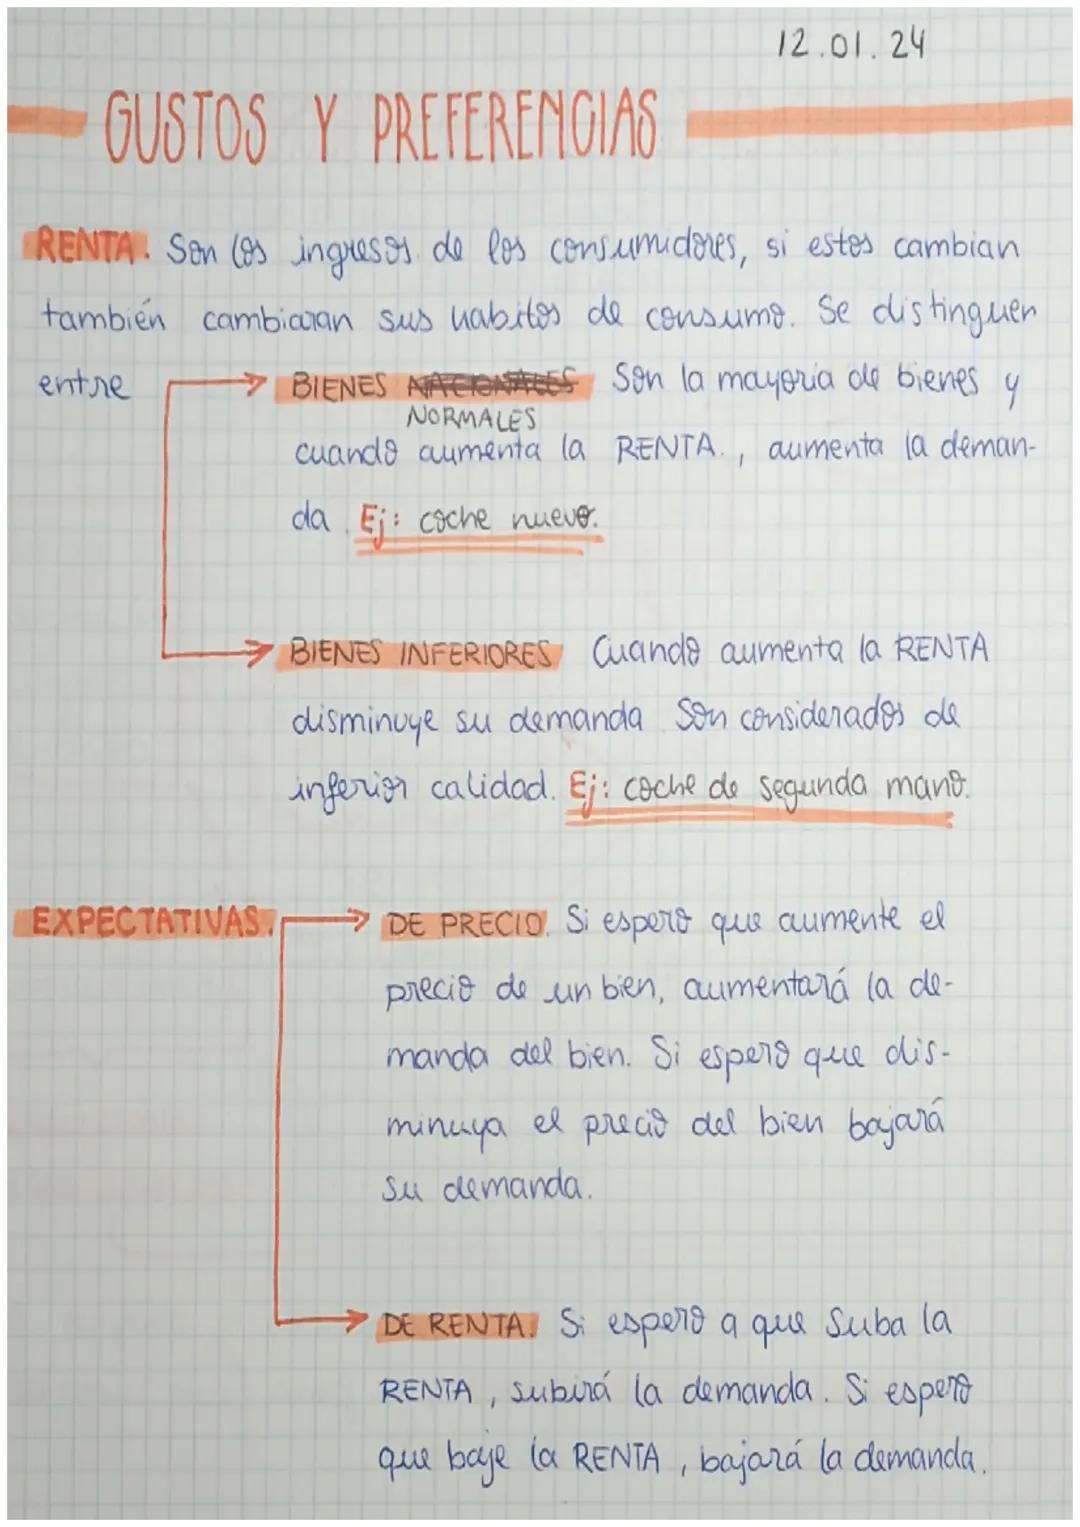 12.01.24
GUSTOS Y PREFERENCIAS
RENTA. Son los ingresos de los consumidores, si estos cambian
también cambiaran sus habitos de consumo. Se distinguen
entre → BIENES NACIONALES Son la mayoria de bienes y
NORMALES
cuando aumenta la RENTA., aumenta la deman-
da. Ej: coche nuevo.
→ BIENES INFERIORES Cuando aumenta la RENTA
disminuye su demanda Son considerados de
inferior calidad. Ej: coche de segunda mano.
EXPECTATIVAS. → DE PRECIO. Si espero que aumente el
precio de un bien, aumentará la de-
manda del bien. Si espero que dis-
minuya el precio del bien bajará
su demanda.
→ DE RENTA. Si espero a que suba la
RENTA, subirá la demanda. Si espero
que baje la RENTA, bajará la demanda.